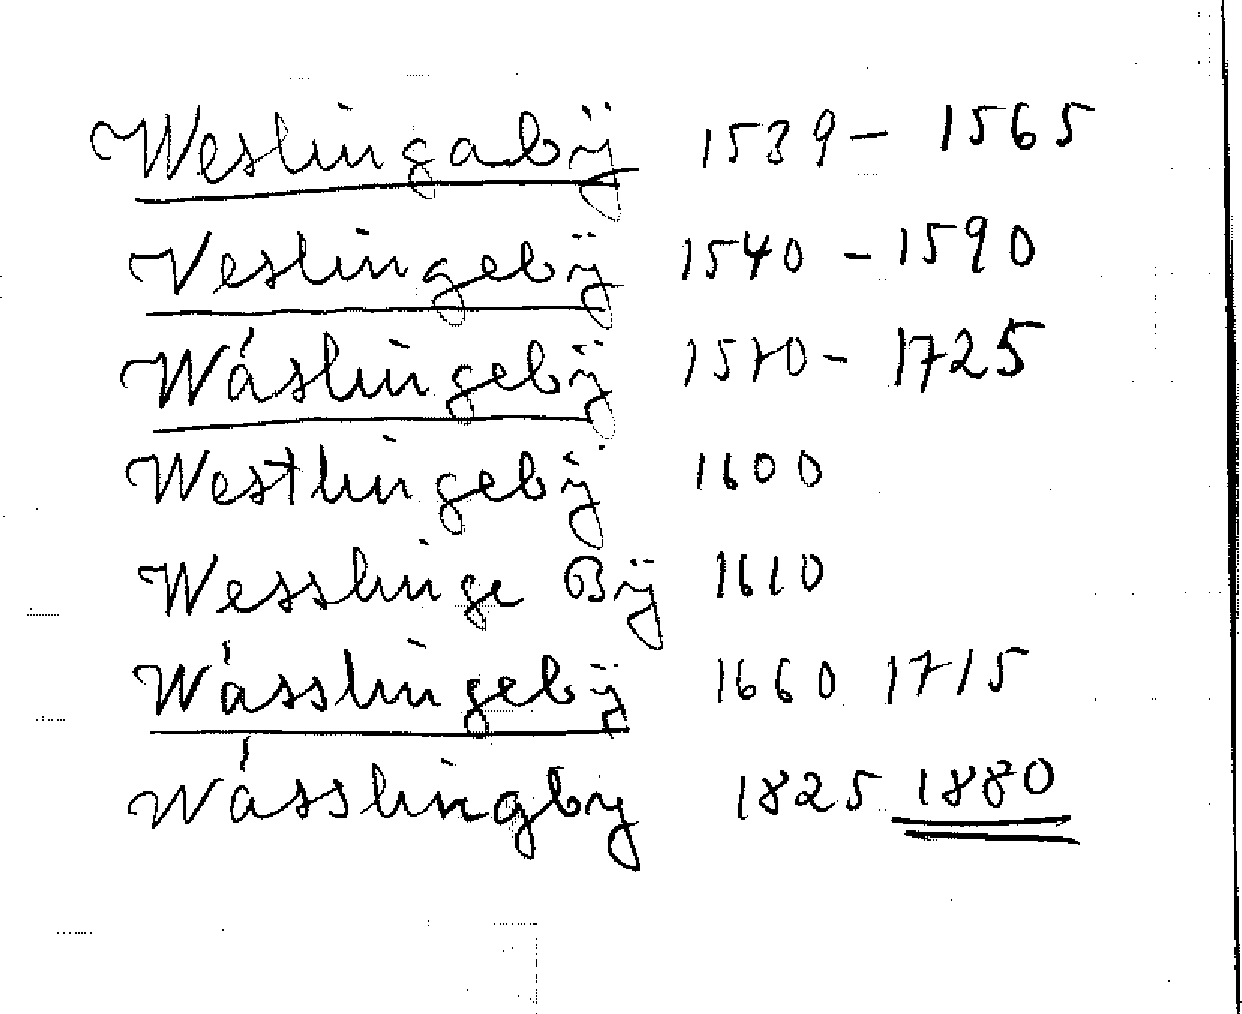 Weslingabÿ 1539 – 1565
Veslingebÿ 1540 – 1590
Wáslingebÿ 1570 – 1725
Westlingebÿ 1600
Wesslinge Bÿ 1610
Wásslingebÿ 1660 1715
Wásslingby 1825 1880